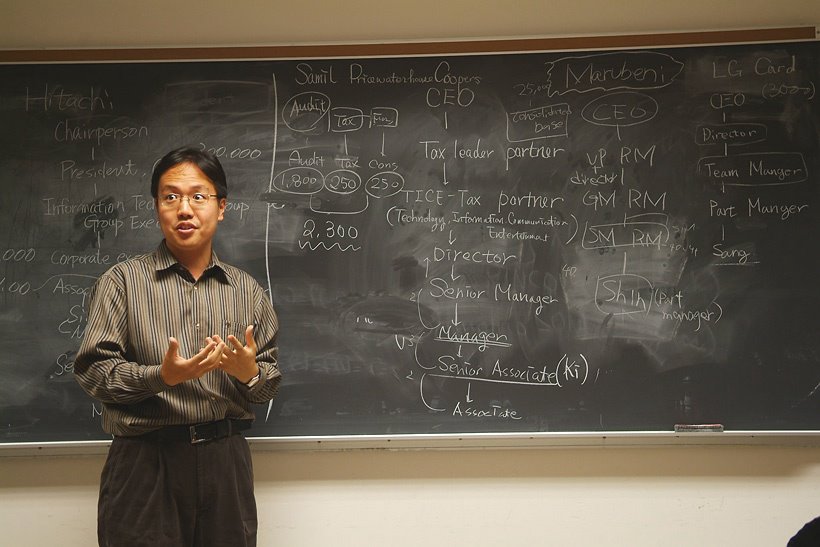 Hitachi
Chairperson
President,
Information Tec
Group Exe
Group
000.000
Corporate exe
Assoc
Samil PricewaterhouseCoopers
CEO
Audit
Tax
Audit Tax Cons
1,800 250 250
2,300
Tax leader partner
TICE-Tax partner
(Technology, Information Communication
Entertainment)
Director
Senior Manager
Manager
Senior Associate (Ki)
Associate
Marubeni
25,000
Consolidated
base
CEO
VP RM
director
GM RM
SM RM
40
Shin (Part
manager)
LG Card
(3000)
CEO
Director
Team Manger
Part Manger
Sang